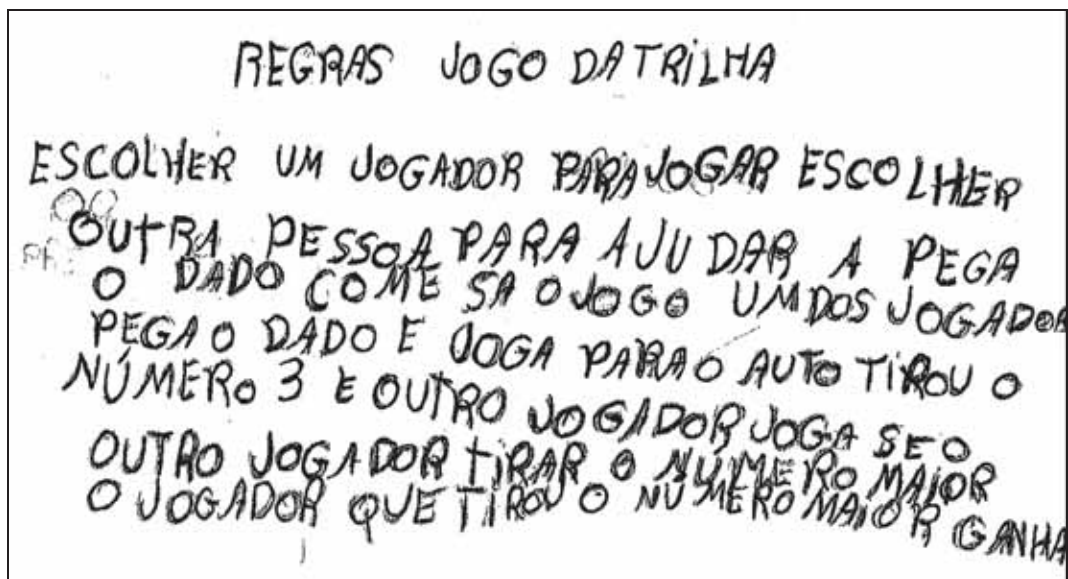 REGRAS JOGO DA TRILHA
ESCOLHER UM JOGADOR PARA JOGAR ESCOLHER
OUTRA PESSOA PARA AJUDAR A PEGA
O DADO COME SA O JOGO UM DOS JOGADOR
PEGA O DADO E JOGA PARA O AUTO TIROU O
NÚMERO 3 E OUTRO JOGADOR JOGA SE O
OUTRO JOGADOR TIRAR O NUMERO MAIOR
O JOGADOR QUE TIROU O NÚMERO MAIOR GANHA